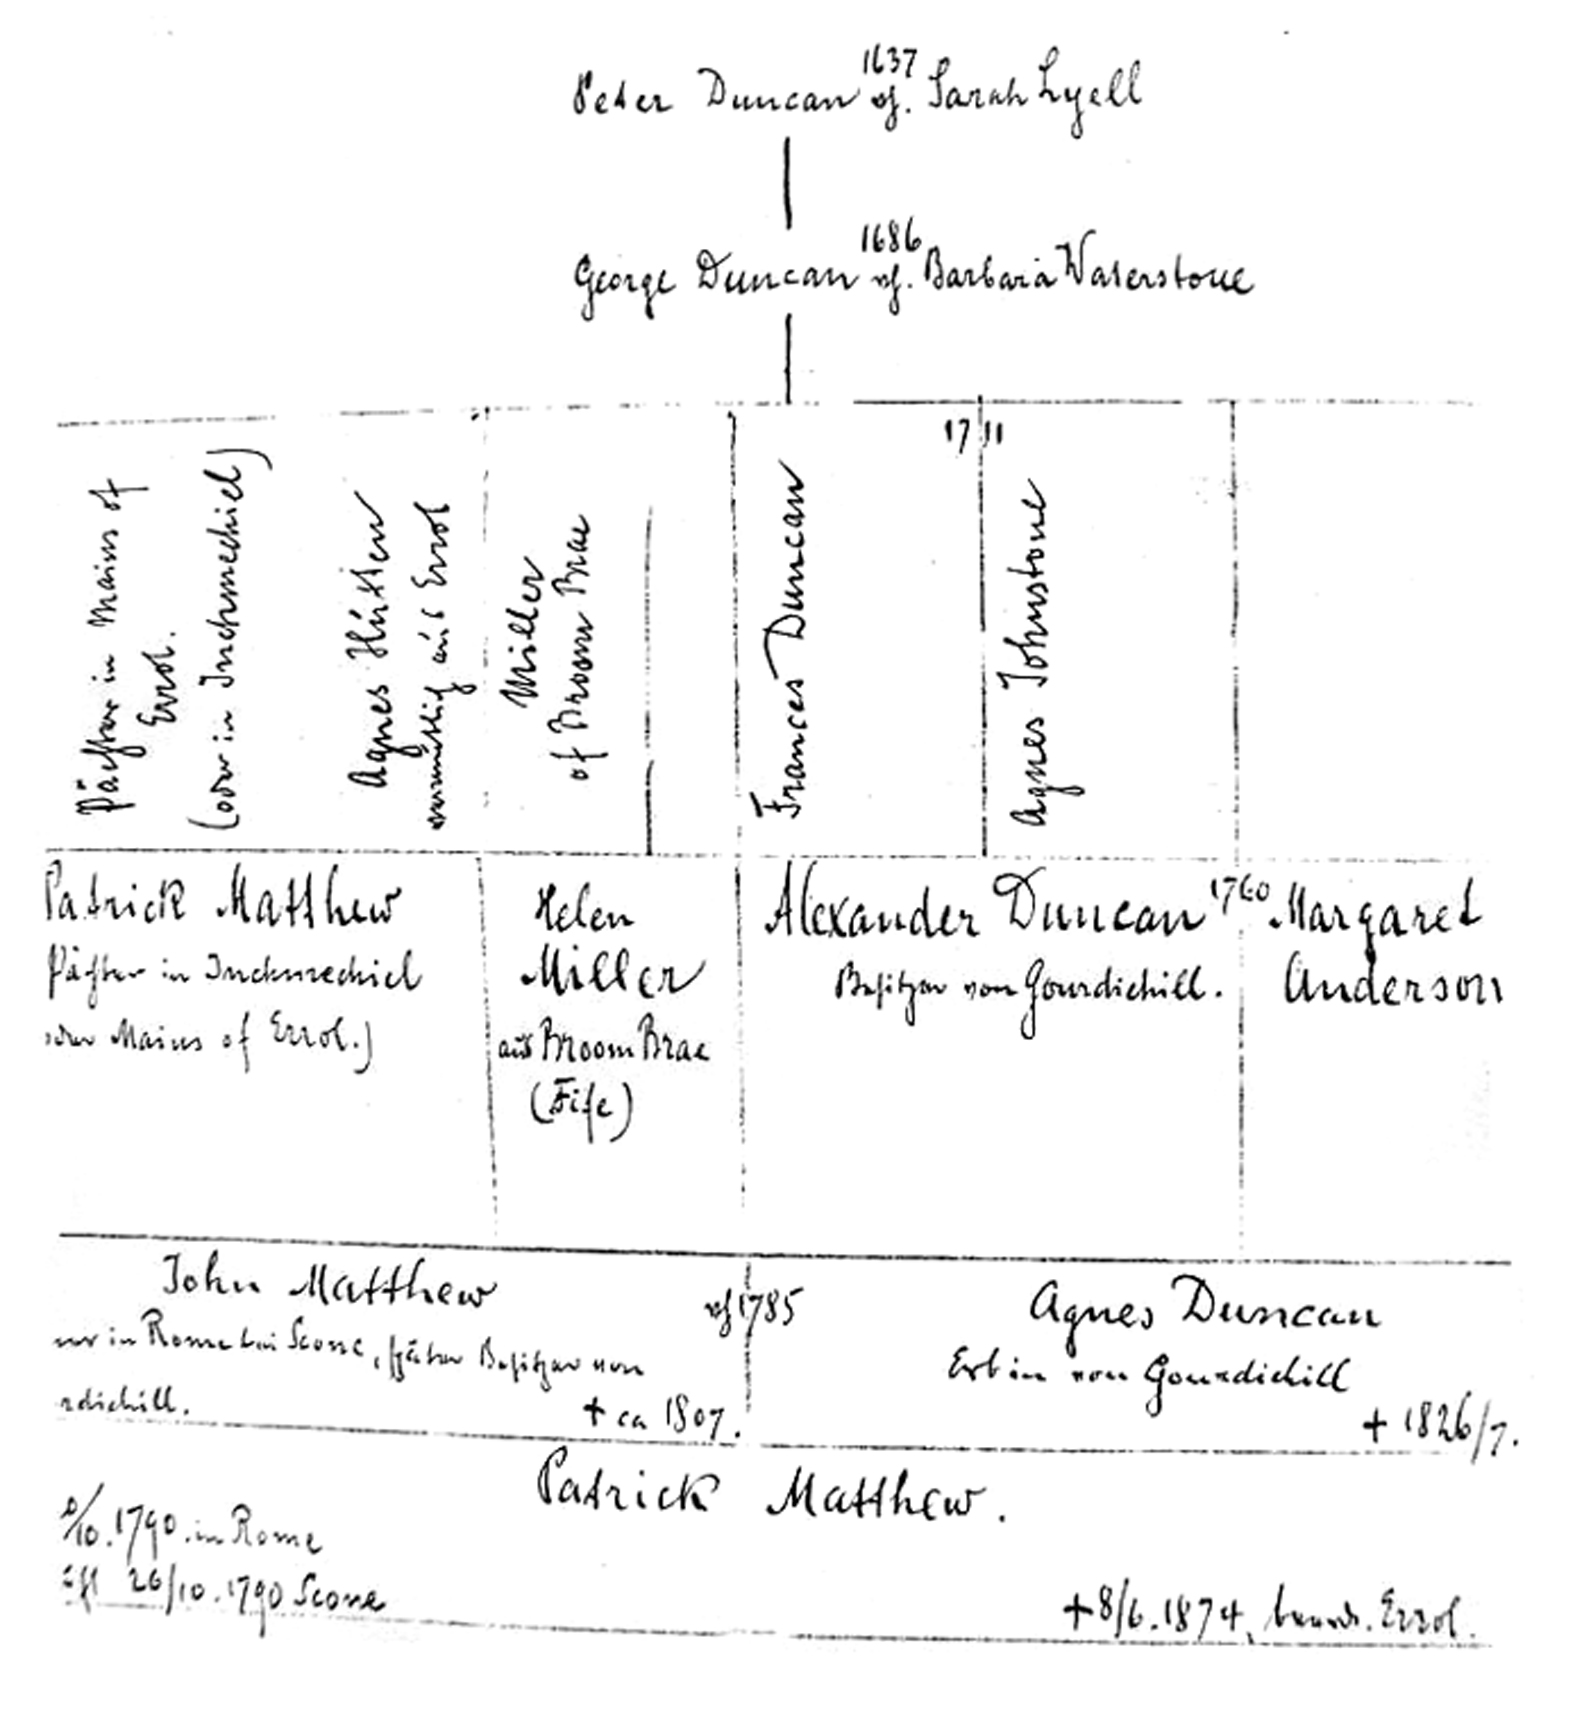 1637
Peter Duncan vh. Sarah Lyell
1686
George Duncan vh. Barbara Waterstone
Pächter in Mains of
Errol.
(oder in Inchmechiel)
Agnes Hutten
vermutlich aus Errol
Miller
of Broom Brae
Frances Duncan
17 11
Agnes Johnstone
Patrick Matthew
Pächter in Inchmechiel
oder Mains of Errol.)
Helen
Miller
aus Broom Brae
(Fife)
Alexander Duncan 1760 Margaret
Besitzer von Gourdiehill. Anderson
John Matthew
in Rome bei Scone, später Besitzer von
rdiehill.
† ca 1807.
vh 1785
Agnes Duncan
Erbin von Gourdiehill
† 1826/7.
Patrick Matthew.
/10. 1790. in Rome
26/10. 1790 Scone
† 8/6. 1874, Errol.